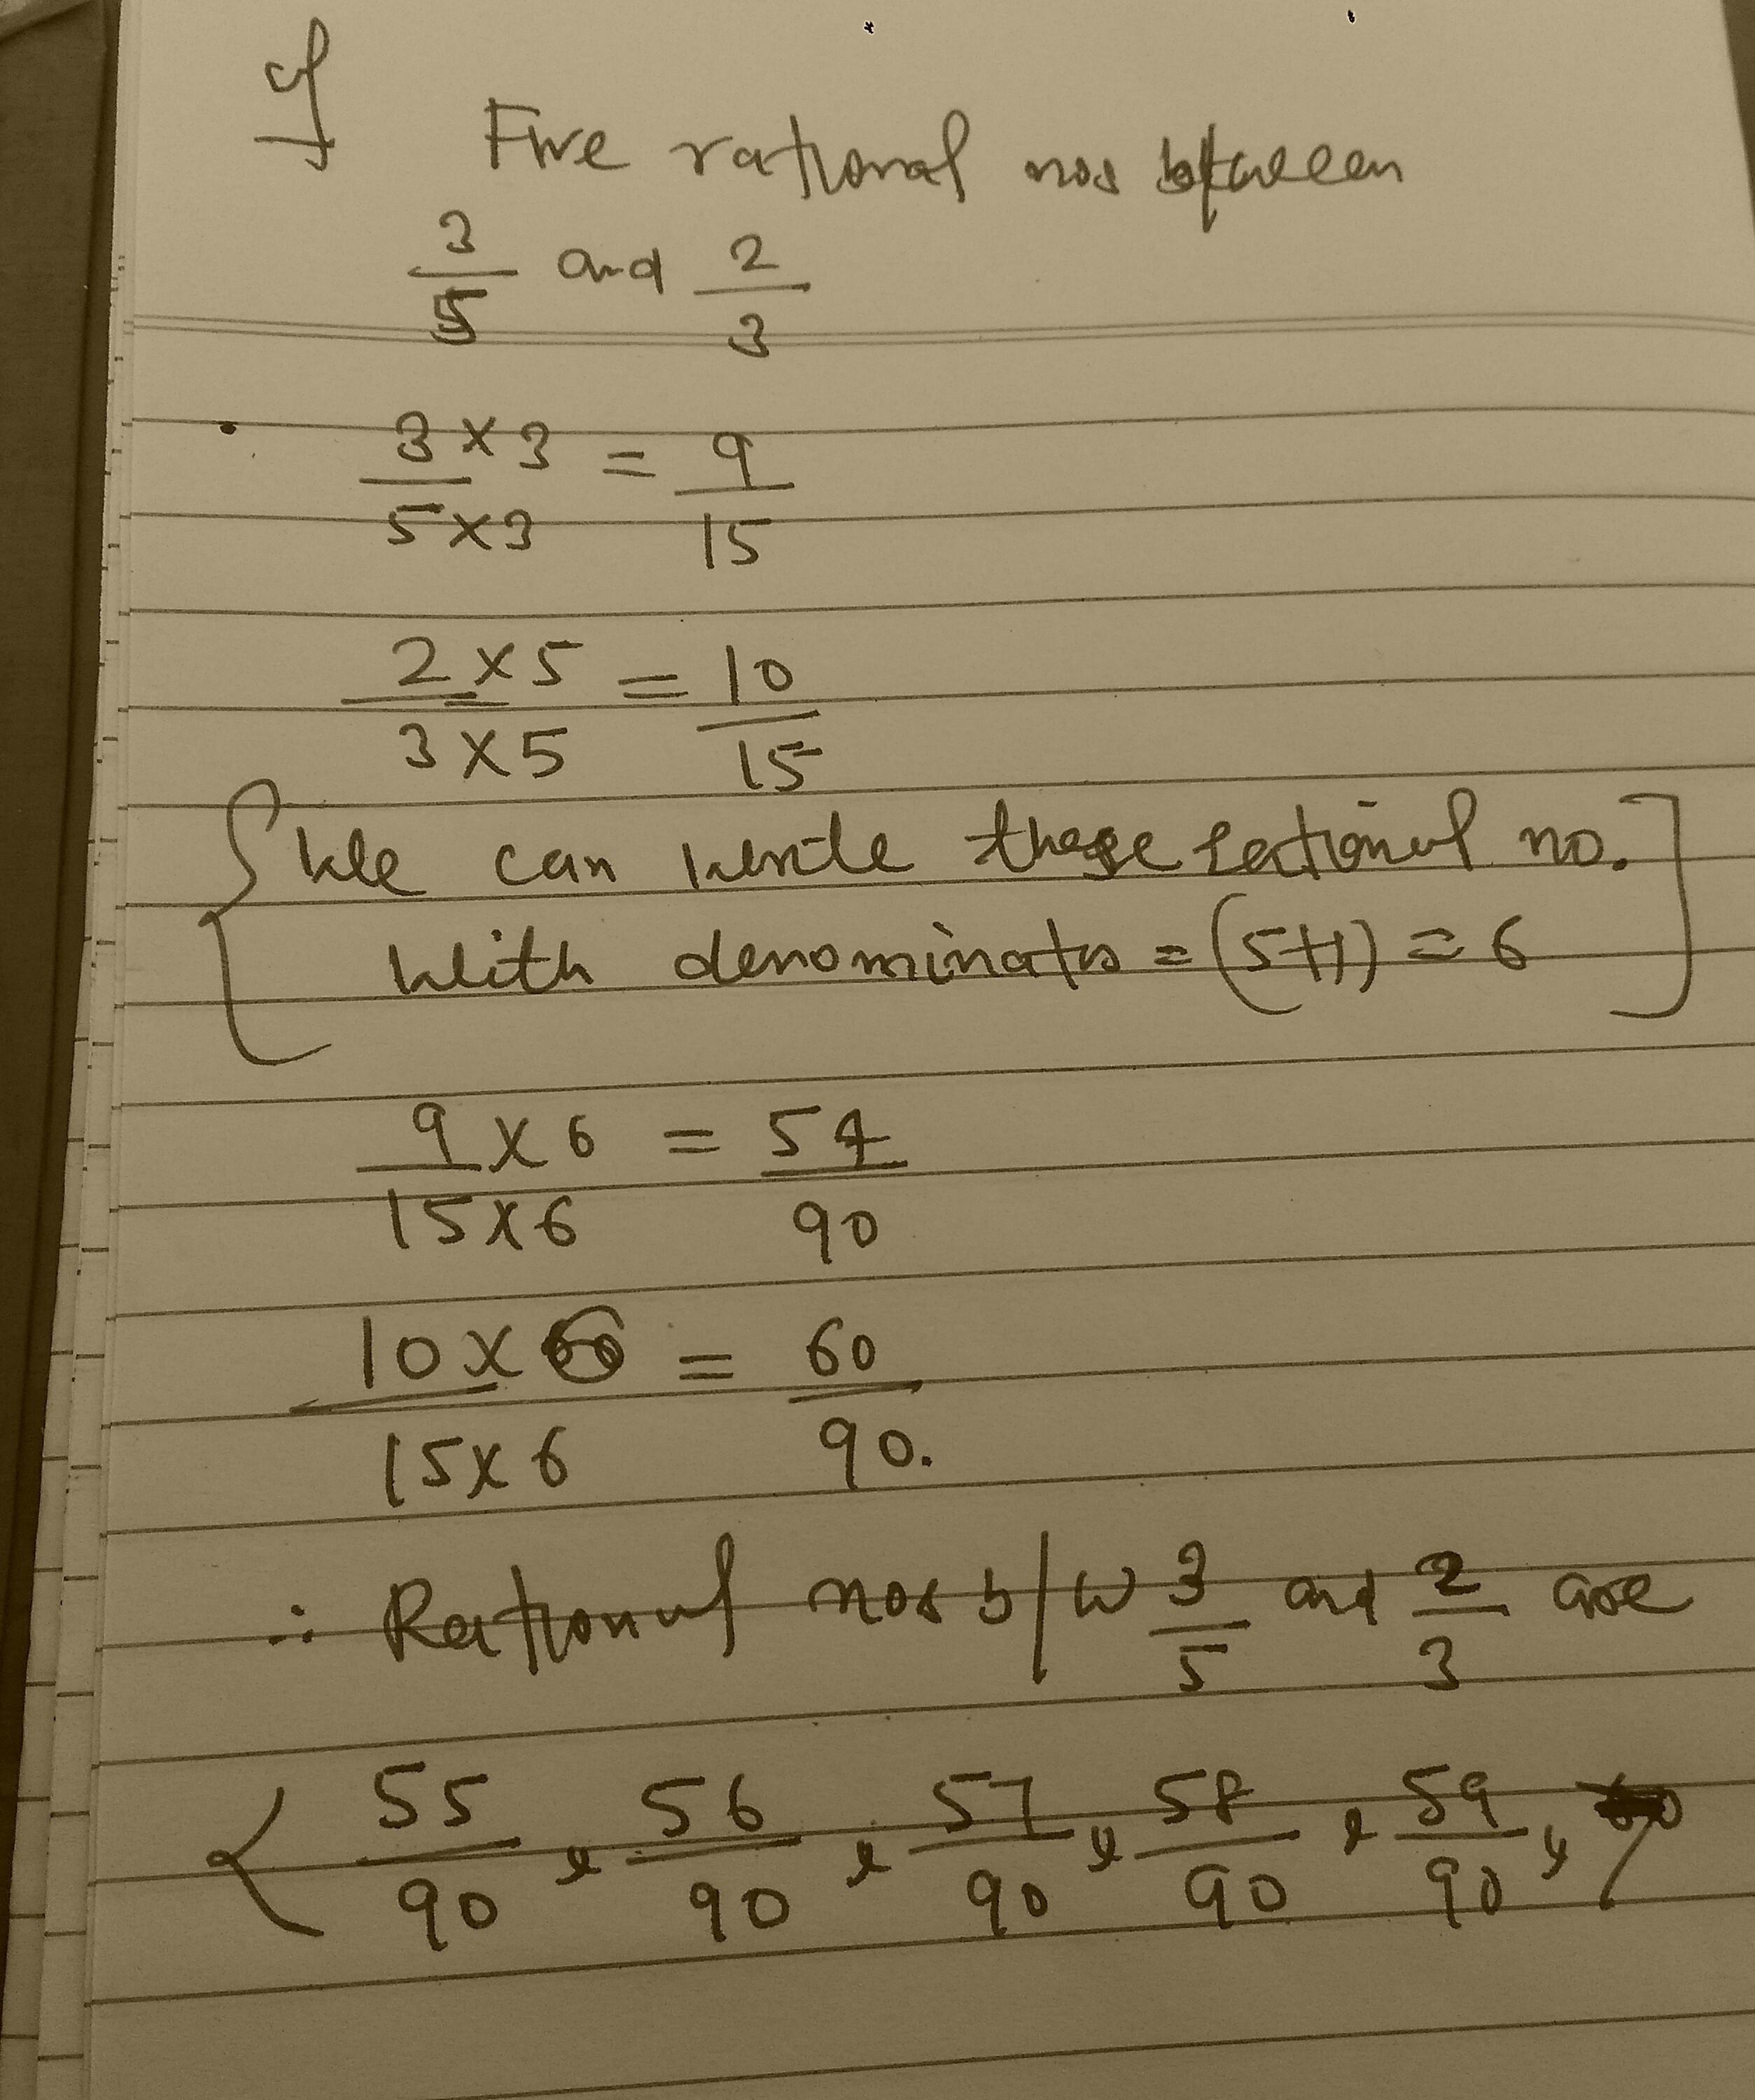 Five rational nos between
3/5 and 2/3
3×3/5×3 = 9/15
2×5/3×5 = 10/15
{ We can write these rational no. ]
with denominator = (5+1) = 6
9×6/15×6 = 54/90
10×6/15×6 = 60/90.
∴ Rational nos b/w 3/5 and 2/3 are
{ 55/90, 56/90, 57/90, 58/90, 59/90,